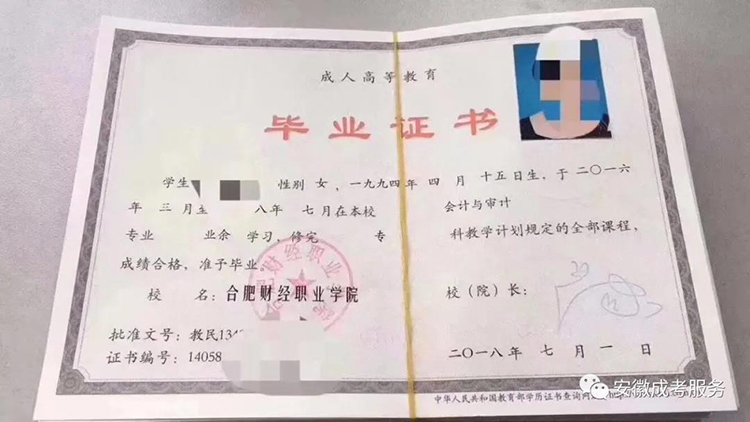 成人高等教育
毕业证书
学生 性别 女 、一九九四年 四 月 十五日生，于 二〇一六
年 三 月至 八年 七月在本校 会计与审计
专业 业余 学习，修完 专 科教学计划规定的全部课程，
成绩合格，准予毕业
校 名：合肥财经职业学院 校（院）长：
批准文号：教民134
证书编号：14058
二〇一八年 七 月 一 日
中华人民共和国教育部学历证书查询网
财经职业
安徽成考服务